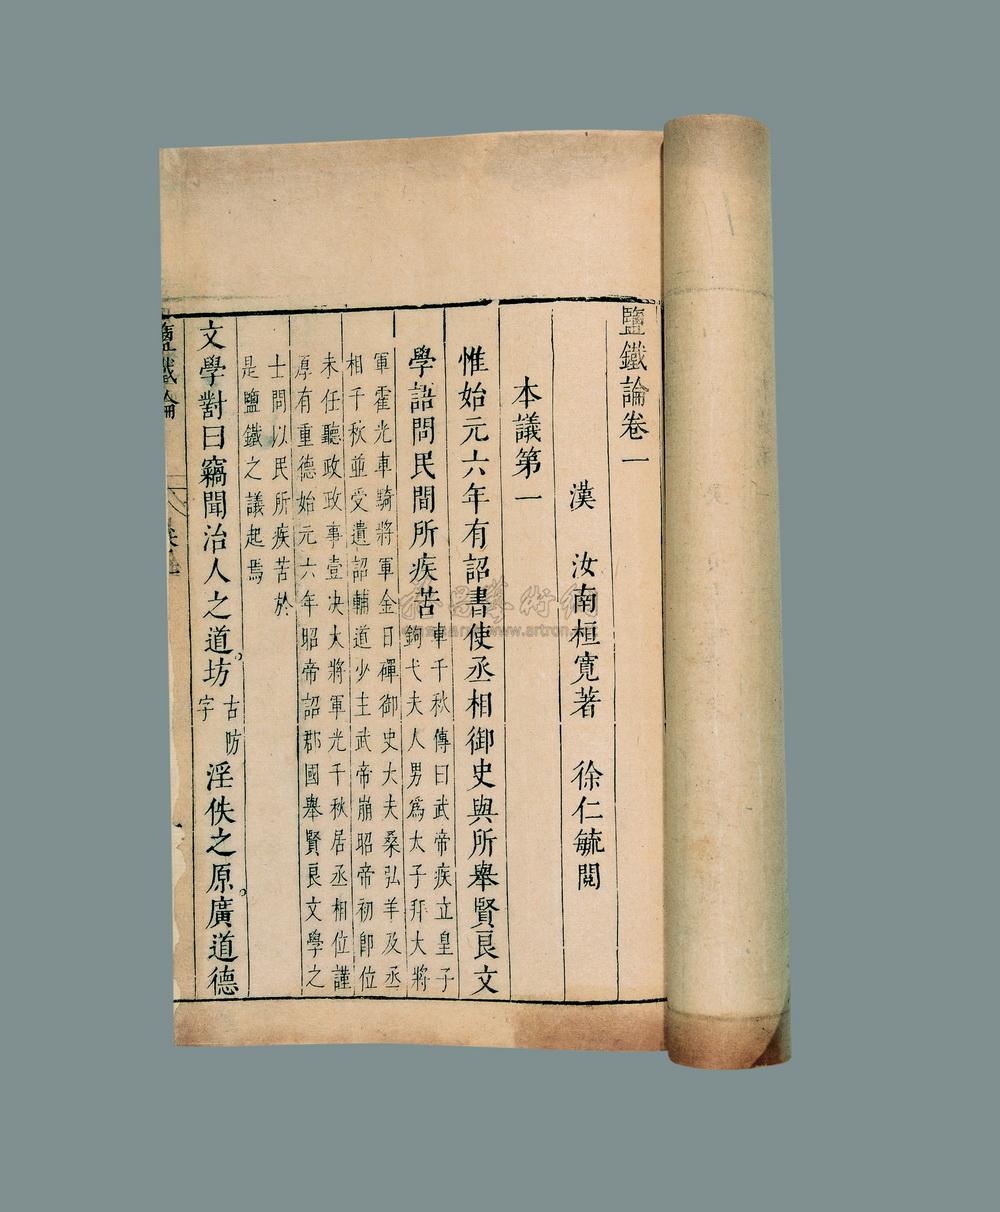 鹽鐵論卷一
漢 汝南桓寬著 徐仁毓閱
本議第一
惟始元六年有詔書使丞相御史與所舉賢良文
學語問民間所疾苦
車千秋傳曰武帝疾立皇子
鉤弋夫人男爲太子拜大將
軍霍光車騎將軍金日磾御史大夫桑弘羊及丞
相千秋並受遺詔輔道少主武帝崩昭帝初卽位
未任聽政政事壹决大將軍光千秋居丞相位謹
厚有重德始元六年昭帝詔郡國舉賢良文學之
士問以民所疾苦於
是鹽鐵之議起焉
文學對曰竊聞治人之道坊古防字淫佚之原廣道德
鹽鐵論
www.artron.net